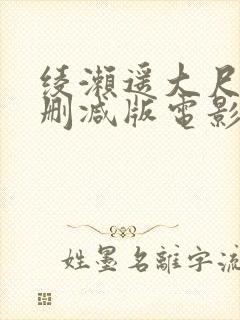 綾瀨遥大尺
删减版電影
姓墨名離字流